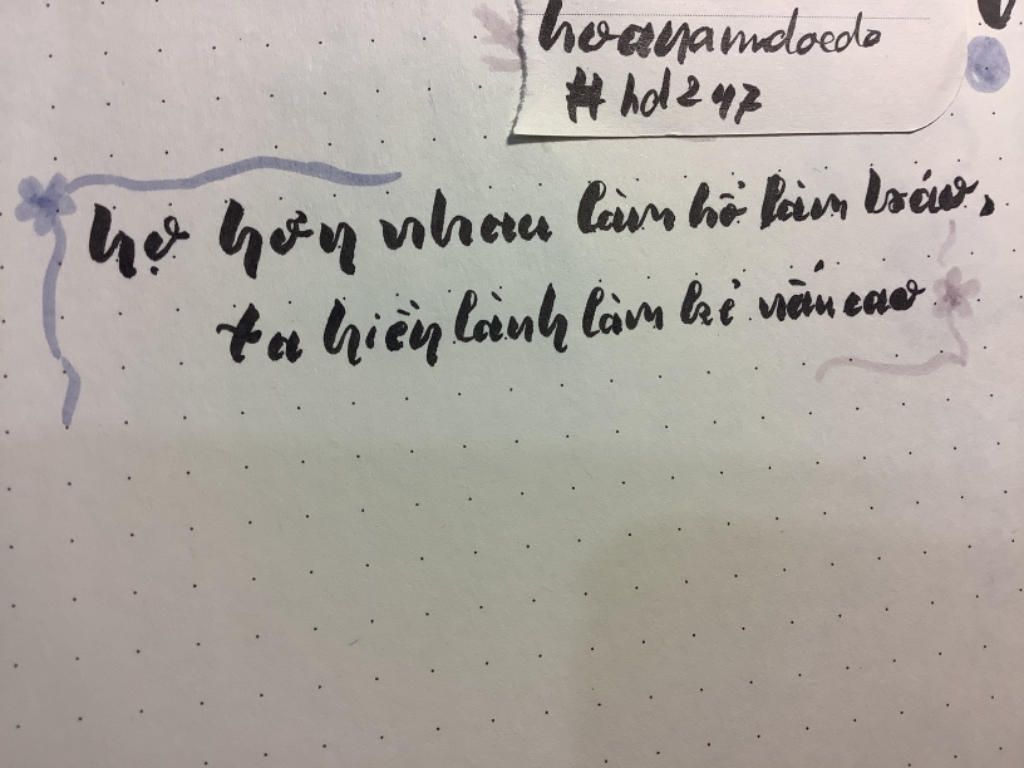 hoanamdocdo
#hd247
họ hơn nhau làm hổ làm báo,
ta hiền lành làm kẻ nấu cao